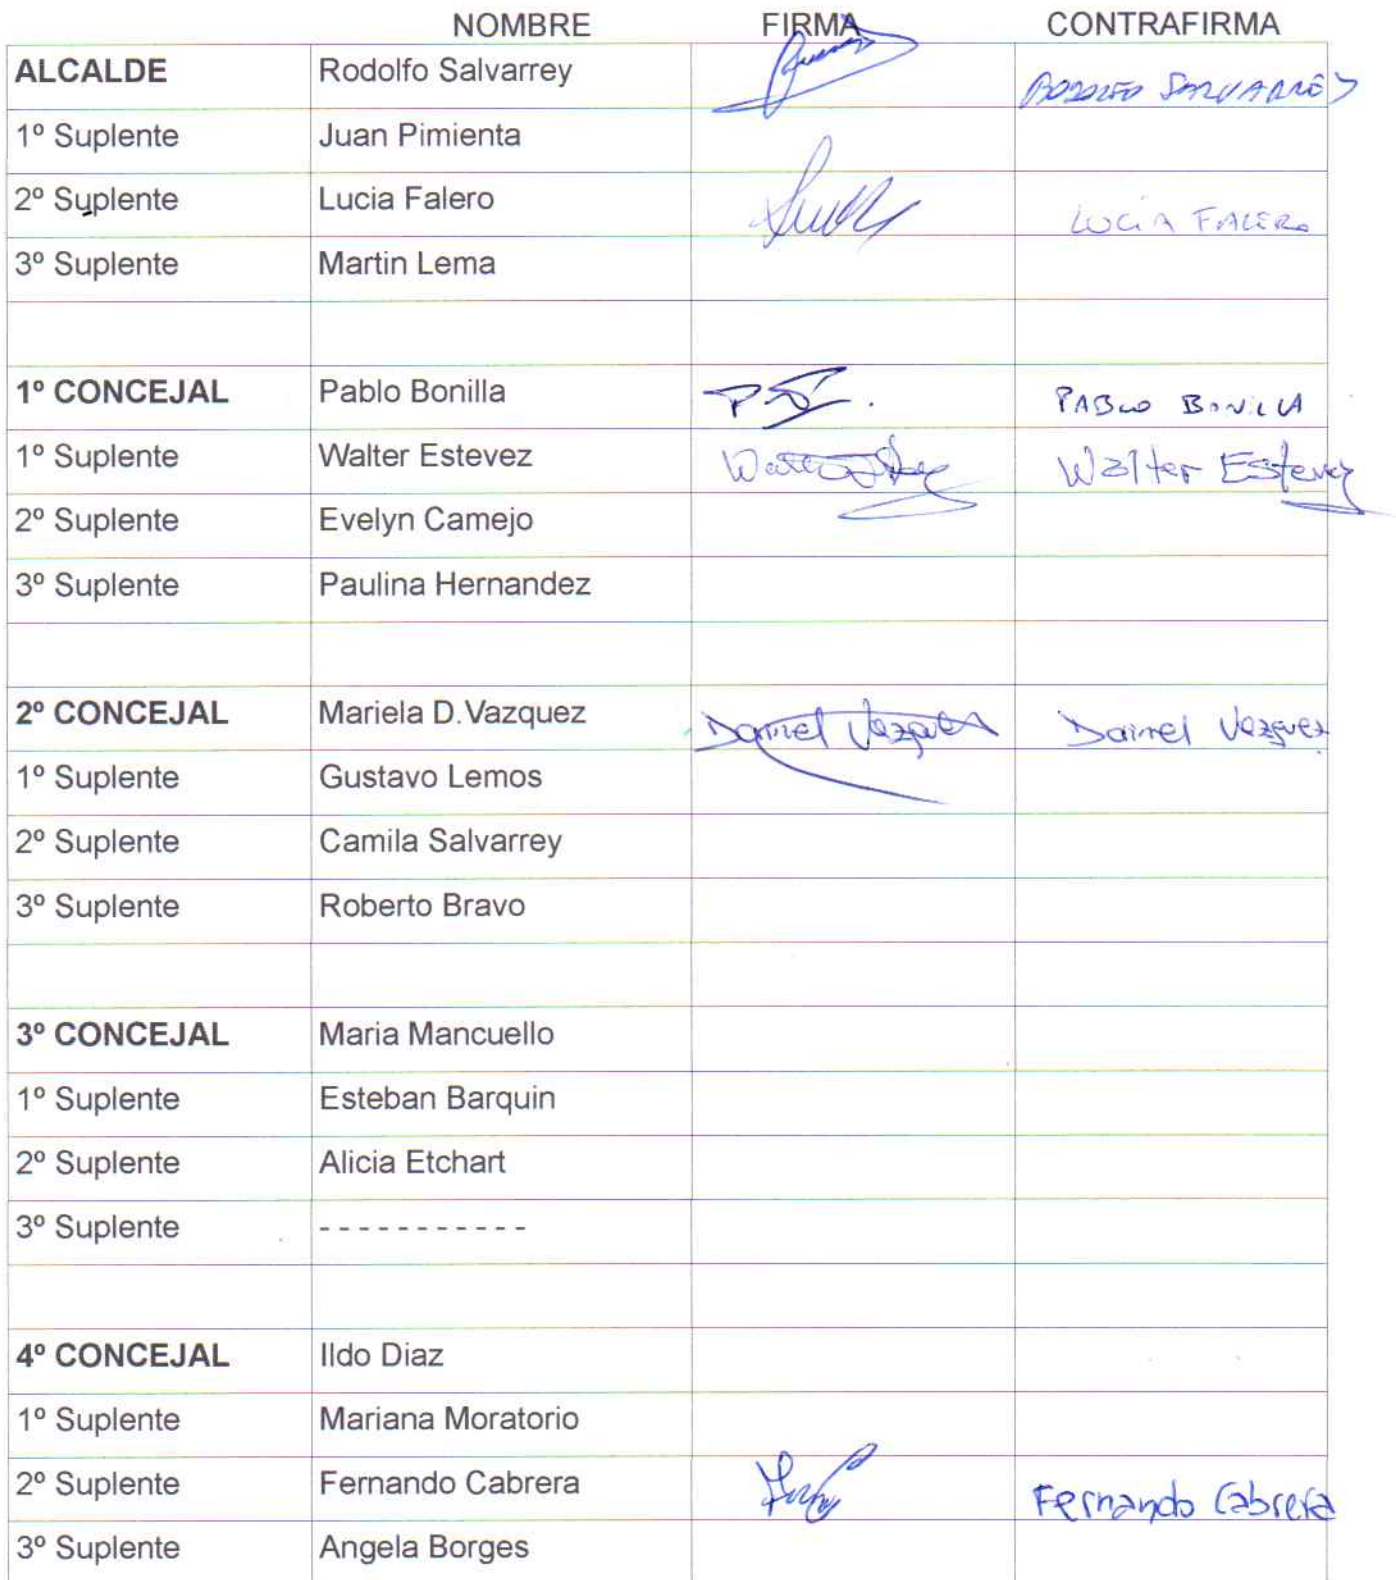 NOMBRE FIRMA CONTRAFIRMA
ALCALDE Rodolfo Salvarrey RODOLFO SALVARREY
1º Suplente Juan Pimienta
2º Suplente Lucia Falero LUCIA FALERO
3º Suplente Martin Lema
1º CONCEJAL Pablo Bonilla PABLO BONILLA
1º Suplente Walter Estevez Walter Estevez
2º Suplente Evelyn Camejo
3º Suplente Paulina Hernandez
2º CONCEJAL Mariela D.Vazquez Daniel Vazquez Daniel Vazquez
1º Suplente Gustavo Lemos
2º Suplente Camila Salvarrey
3º Suplente Roberto Bravo
3º CONCEJAL Maria Mancuello
1º Suplente Esteban Barquin
2º Suplente Alicia Etchart
3º Suplente - - - - - - - - - - -
4º CONCEJAL Ildo Diaz
1º Suplente Mariana Moratorio
2º Suplente Fernando Cabrera Fernando Cabrera
3º Suplente Angela Borges